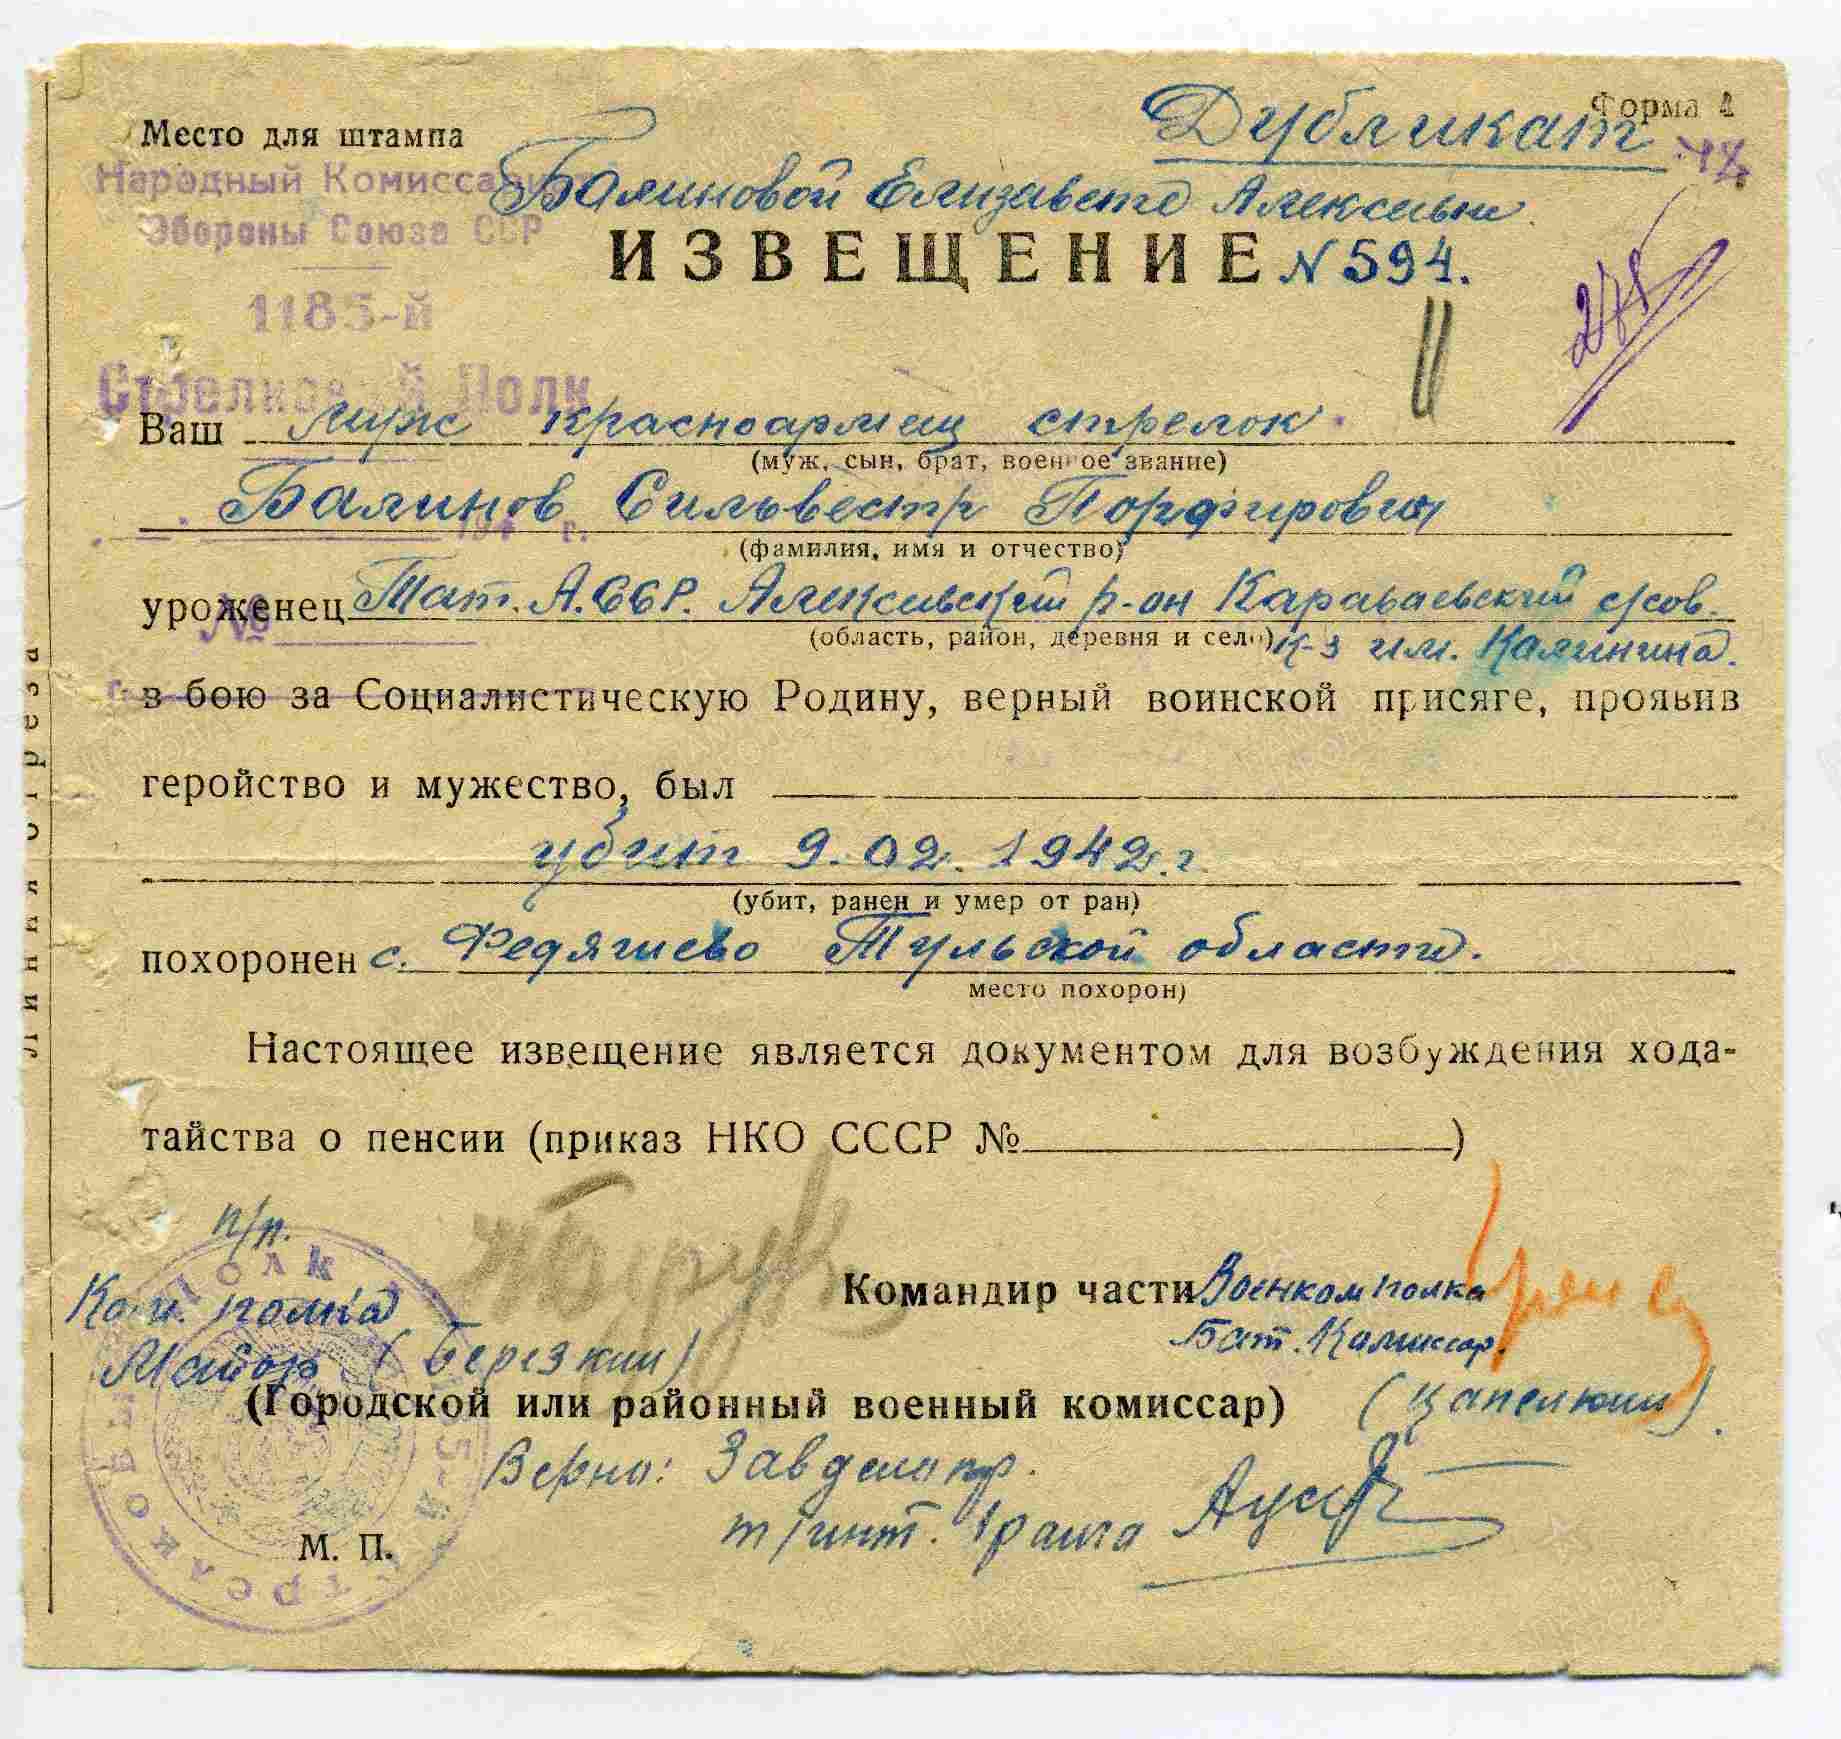 Форма 4
Дубликат
Место для штампа
Народный Комиссариат
Обороны Союза ССР
1185-й
Стрелковый Полк
194 г.
№
Балиновой Елизавете Алексеевне
ИЗВЕЩЕНИЕ N 594.
278
Ваш муж красноармеец стрелок
(муж, сын, брат, военное звание)
Балинов Сильвестр Порфирович
(фамилия, имя и отчество)
уроженец Тат. А.ССР. Алексеевский р-он Караваевский с/сов.
(область, район, деревня и село) к-з им. Калинина.
в бою за Социалистическую Родину, верный воинской присяге, проявив
геройство и мужество, был
убит 9.02.1942 г.
(убит, ранен и умер от ран)
похоронен с. Федяшево Тульской области.
место похорон)
Настоящее извещение является документом для возбуждения хода-
тайства о пенсии (приказ НКО СССР №)
п/п.
Ком. полка
Майор (Березкин)
Командир части Военком полка
Бат. Комиссар.
(Городской или районный военный комиссар) (Цапелюхин).
Верно: Завделопр.
т/инт. 1 ранга
М. П.
Линия отреза